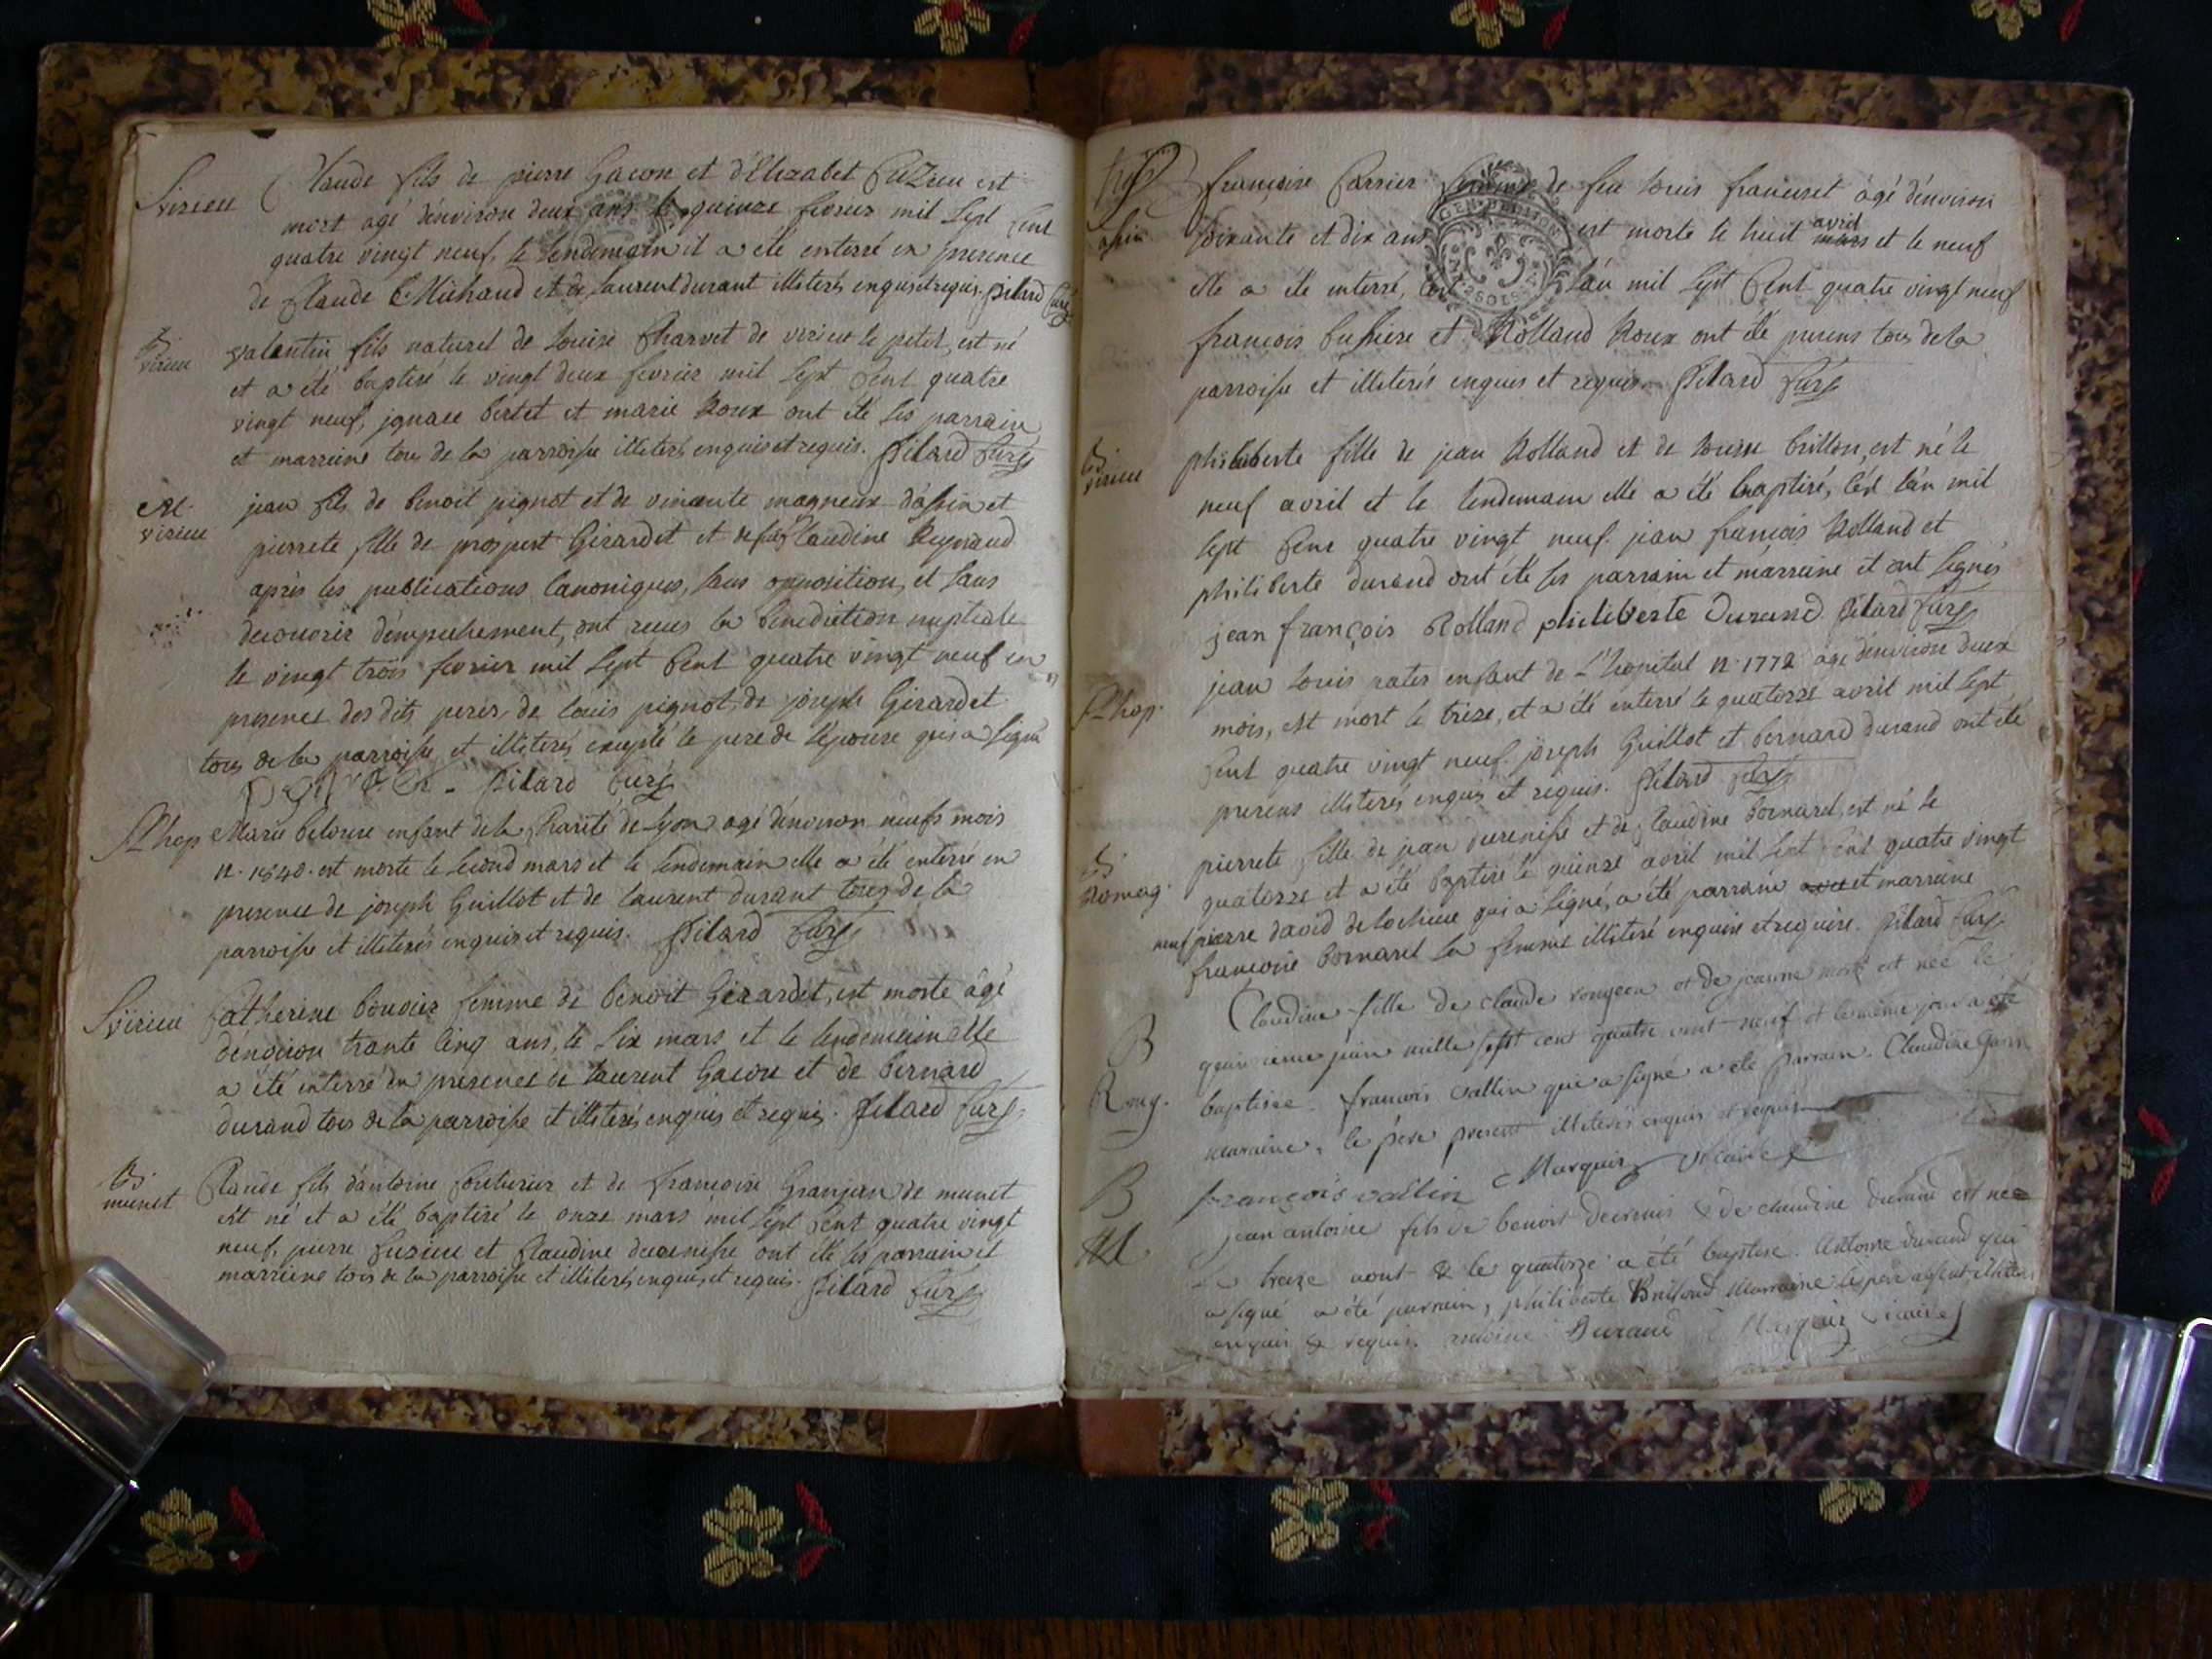 S virieu
Claude fils de pierre Gacon et d'Elizabet Cuzieu est
mort agé d'environ deux ans le quinze fevrier mil sept Cent
quatre vingt neuf, le lendemain il a été enterré en presence
de Claude Michaud et de laurent durant illiterés enquis et requis. pitard Curé
B.
virieu
valentin fils naturel de louise Charvet de virieu le petit, est né
et a été baptisé le vingt deux fevrier mil sept Cent quatre
vingt neuf, jgnace bertet et marie Roux ont été les parrain
et marreine tous de la parroisse illiterés enquis et requis. pitard Curé
M.
virieu
jean fils de benoit pignot et de vincente magneux d'assin et
pierrete fille de prospert Girardet et de feue Claudine Reynaud
après les publications Canoniques, sans opposition, et sans
decouvrir d'empechement, ont reçus la benediction nuptiale
le vingt trois fevrier mil sept Cent quatre vingt neuf en
presence des dits peres, de louis pignot, de joseph Girardet
tous de la parroisse et illiterés excepté le pere de l'epouse qui a signé
pitard Curé
S hop
Marie belouse enfant de la Charité de lyon agé d'environ neufs mois
n. 1840. est morte le second mars et le lendemain elle a été enterré en
presence de joseph Guillot et de laurent durant tous de la
parroisse et illiterés enquis et requis. pitard Curé
S virieu
Catherine bouvier femme de benoit Girardet, est morte âgé
d'environ trante Cinq ans, le six mars et le lendemain elle
a été enterré en presence de laurent Gacon et de bernard
durand tous de la parroisse et illiterés enquis et requis. pitard Curé
B.
munet
Claude fils d'antoine Couturier et de françoise Granjan de munet
est né et a été baptisé le onze mars mil sept Cent quatre vingt
neuf, pierre Cuzieu et Claudine ducenisse ont été les parrain et
marreine tous de la parroisse et illiterés, enquis et requis. pitard Curé
assin
françoise Carrier femme de feu louis franauset âgé d'environ
soixante et dix ans est morte le huit mars avril et le neuf
elle a été enterré, c'est l'an mil sept Cent quatre vingt neuf
GEN
françois bussiere et Rolland Roux ont été presens tous de la
parroisse et illiterés enquis et requis. pitard Curé
B.
virieu
philiberte fille de jean Rolland et de louise brillon, est né le
neuf avril et le lendemain elle a été baptisé, c'est l'an mil
sept Cent quatre vingt neuf. jean françois Rolland et
philiberte durand ont été les parrain et marreine et ont signés
jean françois Rolland philiberte Durand. pitard Curé
S hop.
jean louis rates enfant de L'hopital n. 1772 agé d'environ deux
mois, est mort le treize, et a été enterré le quatorze avril mil sept
Cent quatre vingt neuf. joseph Guillot et bernard durand ont été
presens illiterés enquis et requis. pitard Curé
B.
Romag.
pierrete fille de jean ducenisse et de Claudine bornarel, est né le
quatorze et a été baptisé le quinze avril mil sept Cent quatre vingt
neuf pierre david delochieue qui a signé, a été parrain et marreine
françoise bornarel sa femme illiteré enquise et requise. pitard Curé
B
Romg.
Claudine fille de claude rougeon et de jeanne est née le
juin mille sept cent quatre vint neuf et le même jour a été
baptisée. francois vallin qui a signé a été parrain. Claudine
maraine, le père present illiterés enquis et requis
françois vallin Marquis vicaire
B
jean antoine fils de benoit & de claudine durand est né
le treize aout & le quatorze a été baptisé. Antoine durand qui
a signé a été parrain, philiberte marraine le père absent illiteré
enquis & requis. antoine Durand Marquis vicaire